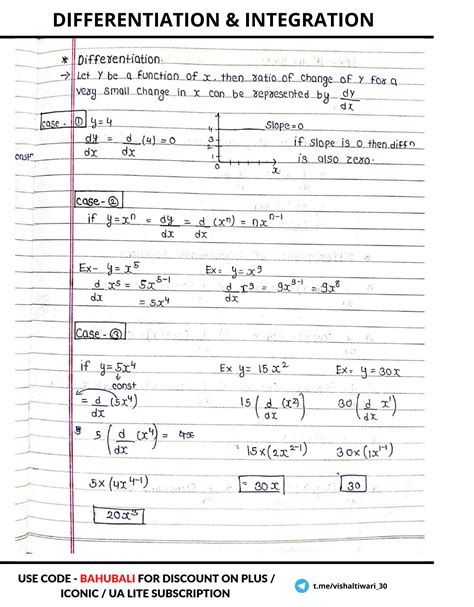 DIFFERENTIATION & INTEGRATION
* Differentiation.
→ Let Y be a function of x, then ratio of change of Y for a
very small change in x can be represented by dy/dx
case - ① y = 4
dy/dx = d/dx (4) = 0
const
4
3
2
1
0
x
Slope = 0
if slope is 0 then diffn
is also zero.
Case - ②
if y = xⁿ = dy/dx = d/dx (xⁿ) = nxⁿ⁻¹
Ex- y = x⁵
d/dx x⁵ = 5x⁵⁻¹
= 5x⁴
Ex = y = x⁹
d/dx x⁹ = 9x⁹⁻¹ = 9x⁸
Case - ③
if y = 5x⁴
const
= d/dx (5x⁴)
5 (d/dx (x⁴) = 4x
5 × (4x⁴⁻¹)
20x³
Ex y = 15x²
15 (d/dx (x²))
= 15 × (2x²⁻¹)
= 30x
Ex = y = 30x
30 (d/dx x¹)
30 × (1x¹⁻¹)
30
USE CODE - BAHUBALI FOR DISCOUNT ON PLUS /
ICONIC / UA LITE SUBSCRIPTION
t.me/vishaltiwari_30